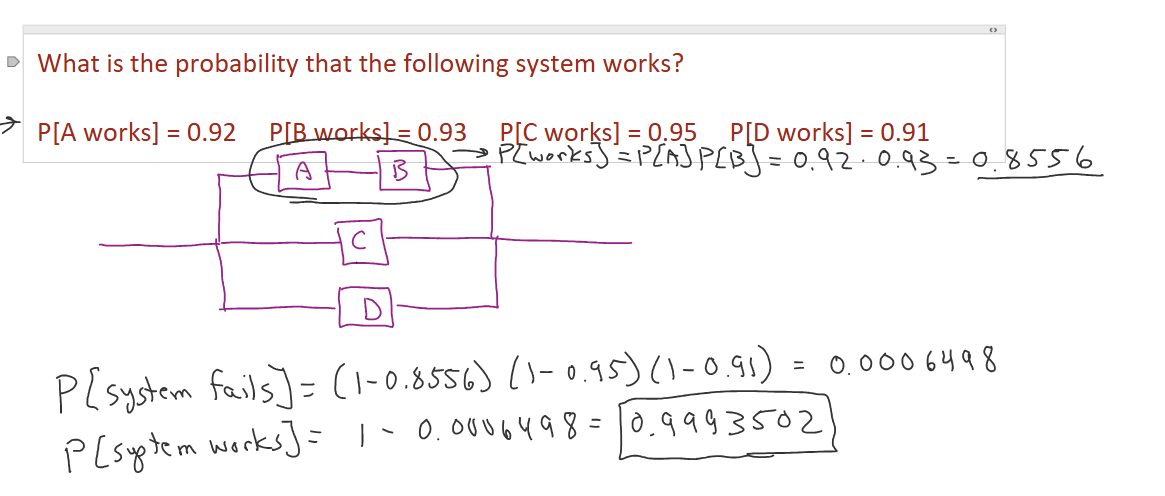 What is the probability that the following system works?
P[A works] = 0.92 P[B works] = 0.93 P[C works] = 0.95 P[D works] = 0.91
P[works] = P[A] P[B] = 0.92 · 0.93 = 0.8556
A B
C
D
P[system fails] = (1-0.8556) (1-0.95) (1-0.91) = 0.0006498
P[system works] = 1 - 0.0006498 = 0.9993502